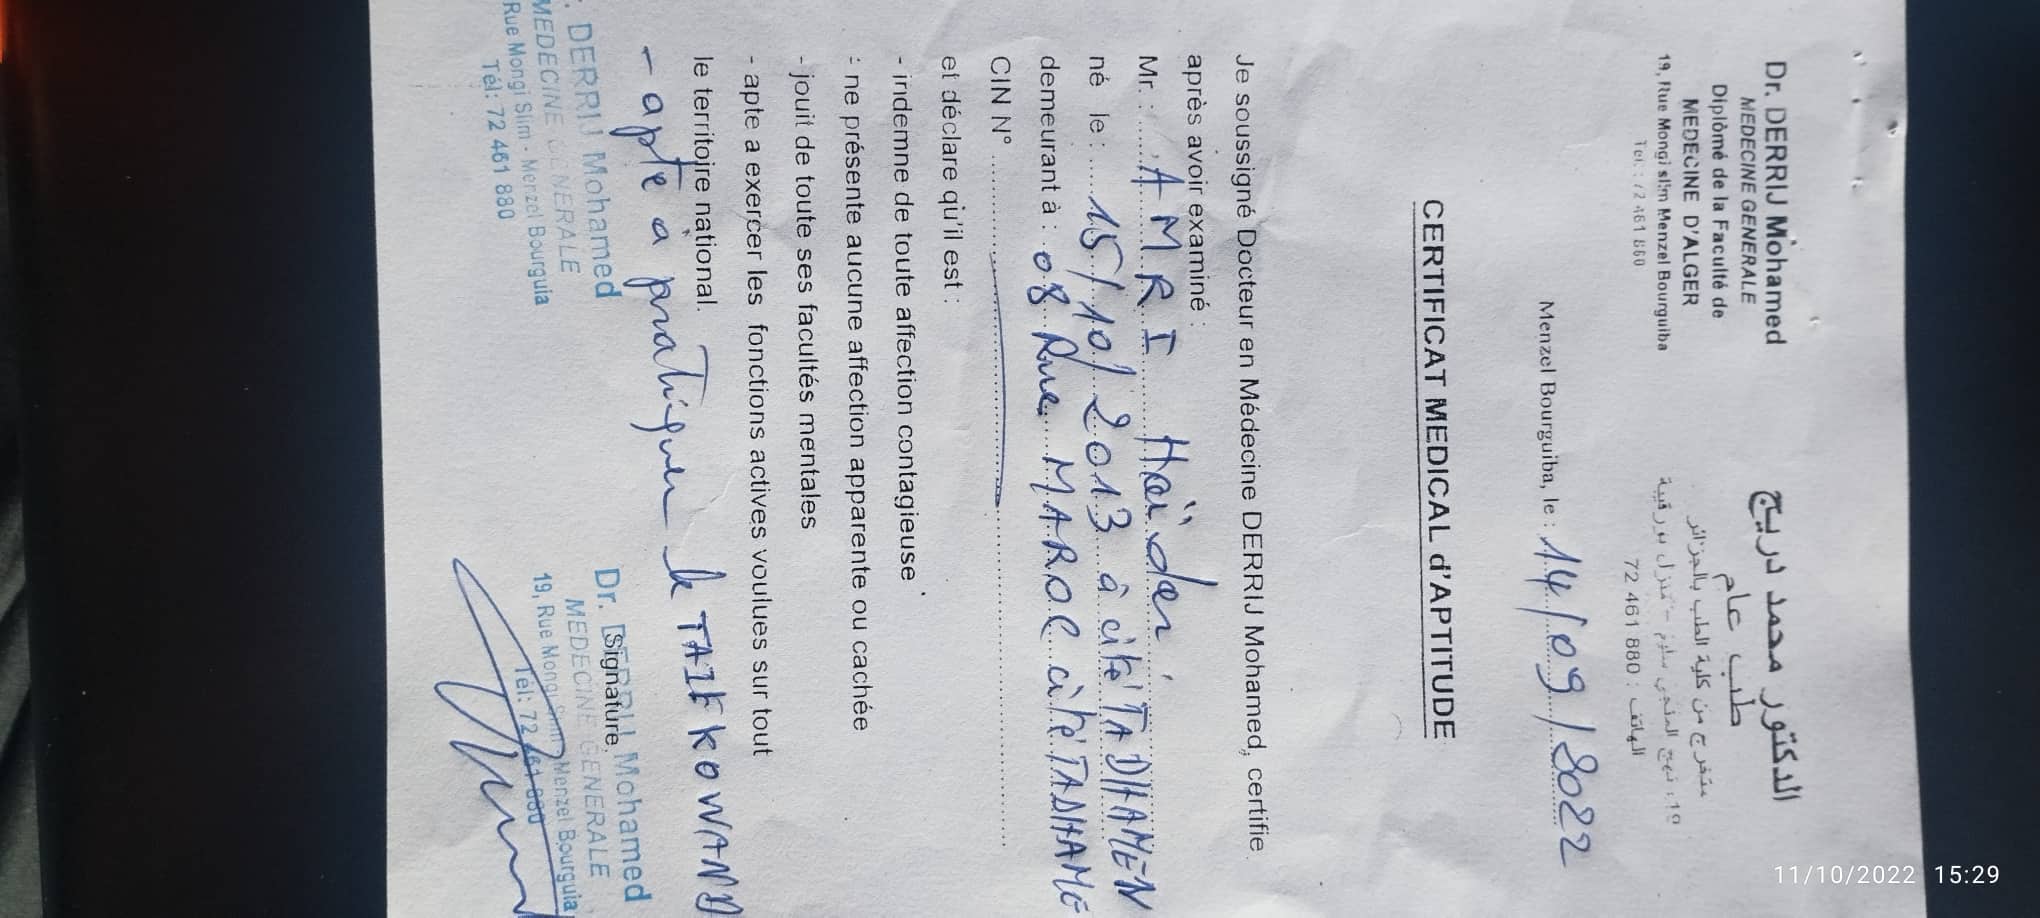 Dr. DERRIJ Mohamed
MEDECINE GENERALE
Diplômé de la Faculté de
MEDECINE D'ALGER
19, Rue Mongi slim Menzel Bourguiba
Tel. : 72 461 880
الدكتور محمد دريج
طب عام
متخرج من كلية الطب بالجزائر
19 : نهج المنجي سليم - منزل بورقيبة
الهاتف : 72 461 880
Menzel Bourguiba, le : 14/09/2022
CERTIFICAT MEDICAL d'APTITUDE
Je soussigné Docteur en Médecine DERRIJ Mohamed, certifie
après avoir examiné :
Mr. : AMRI Haïder
né le : 15/10/2013 à cité TADHAMEN
demeurant à : 08 Rue MAROC cité TADHAME
CIN N°
et déclare qu'il est :
- indemne de toute affection contagieuse
- ne présente aucune affection apparente ou cachée
- jouit de toute ses facultés mentales
- apte a exercer les fonctions actives voulues sur tout
le territoire national.
- apte a pratiquer le TAIKKOWAND
DERRIJ Mohamed
MEDECINE GENERALE
Rue Mongi Slim - Menzel Bourguia
Tél: 72 461 880
Signature
Dr. DERRIJ Mohamed
MEDECINE GENERALE
19, Rue Mongi Slim - Menzel Bourguia
Tél: 72 461 880
11/10/2022 15:29